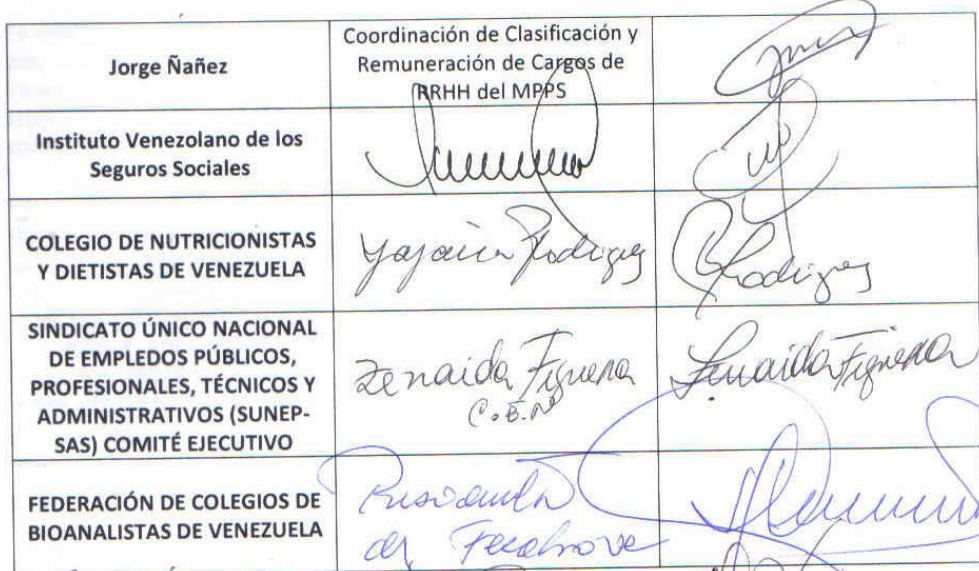 Jorge Ñañez
Coordinación de Clasificación y
Remuneración de Cargos de
RRHH del MPPS
Instituto Venezolano de los
Seguros Sociales
COLEGIO DE NUTRICIONISTAS
Y DIETISTAS DE VENEZUELA
Yajaira Rodríguez
Rodríguez
SINDICATO ÚNICO NACIONAL
DE EMPLEDOS PÚBLICOS,
PROFESIONALES, TÉCNICOS Y
ADMINISTRATIVOS (SUNEP-
SAS) COMITÉ EJECUTIVO
Zenaida Figuera
C.E.N
Zenaida Figuera
FEDERACIÓN DE COLEGIOS DE
BIOANALISTAS DE VENEZUELA
Presidenta
de